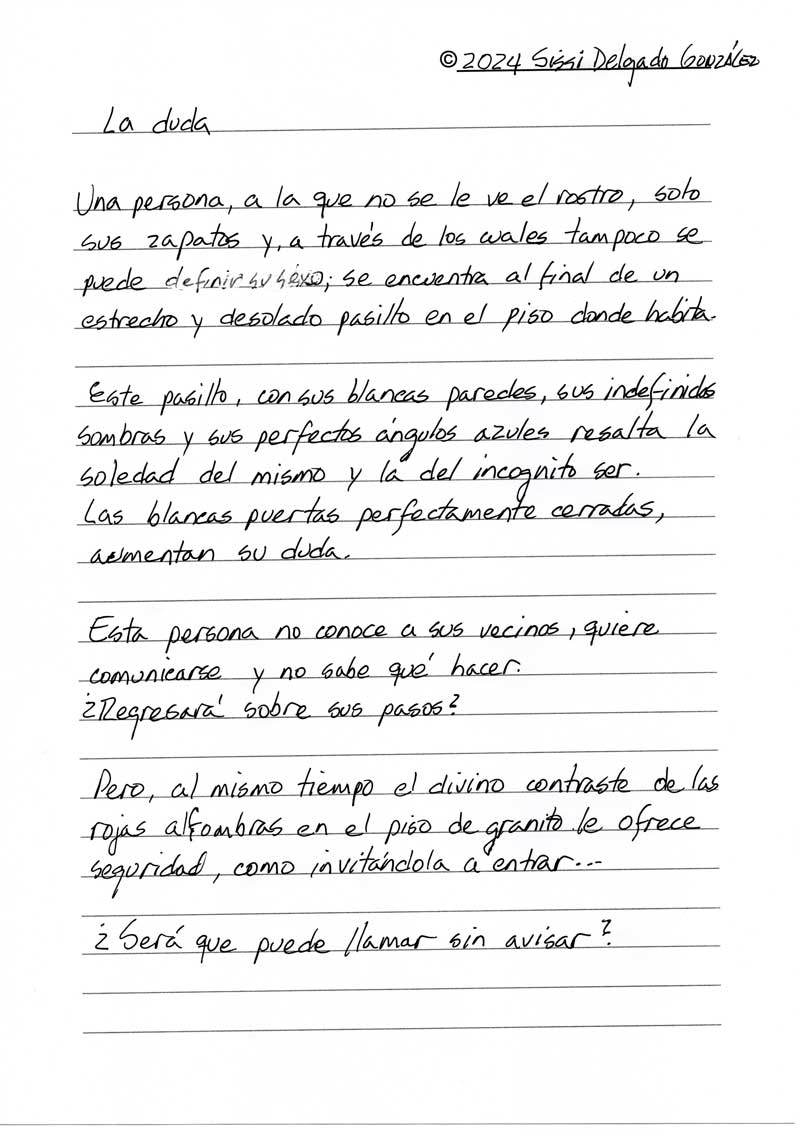 ©2024 Sissi Delgado GONZÁLEZ
La duda
Una persona, a la que no se le ve el rostro, solo
sus zapatos y, a través de los cuales tampoco se
puede definir su sexo; se encuentra al final de un
estrecho y desolado pasillo en el piso donde habita.
Este pasillo, con sus blancas paredes, sus indefinidas
sombras y sus perfectos ángulos azules resalta la
soledad del mismo y la del incognito ser.
Las blancas puertas perfectamente cerradas,
aumentan su duda.
Esta persona no conoce a sus vecinos, quiere
comunicarse y no sabe qué hacer.
¿Regresará sobre sus pasos?
Pero, al mismo tiempo el divino contraste de las
rojas alfombras en el piso de granito le ofrece
seguridad, como invitándola a entrar...
¿Será que puede llamar sin avisar?